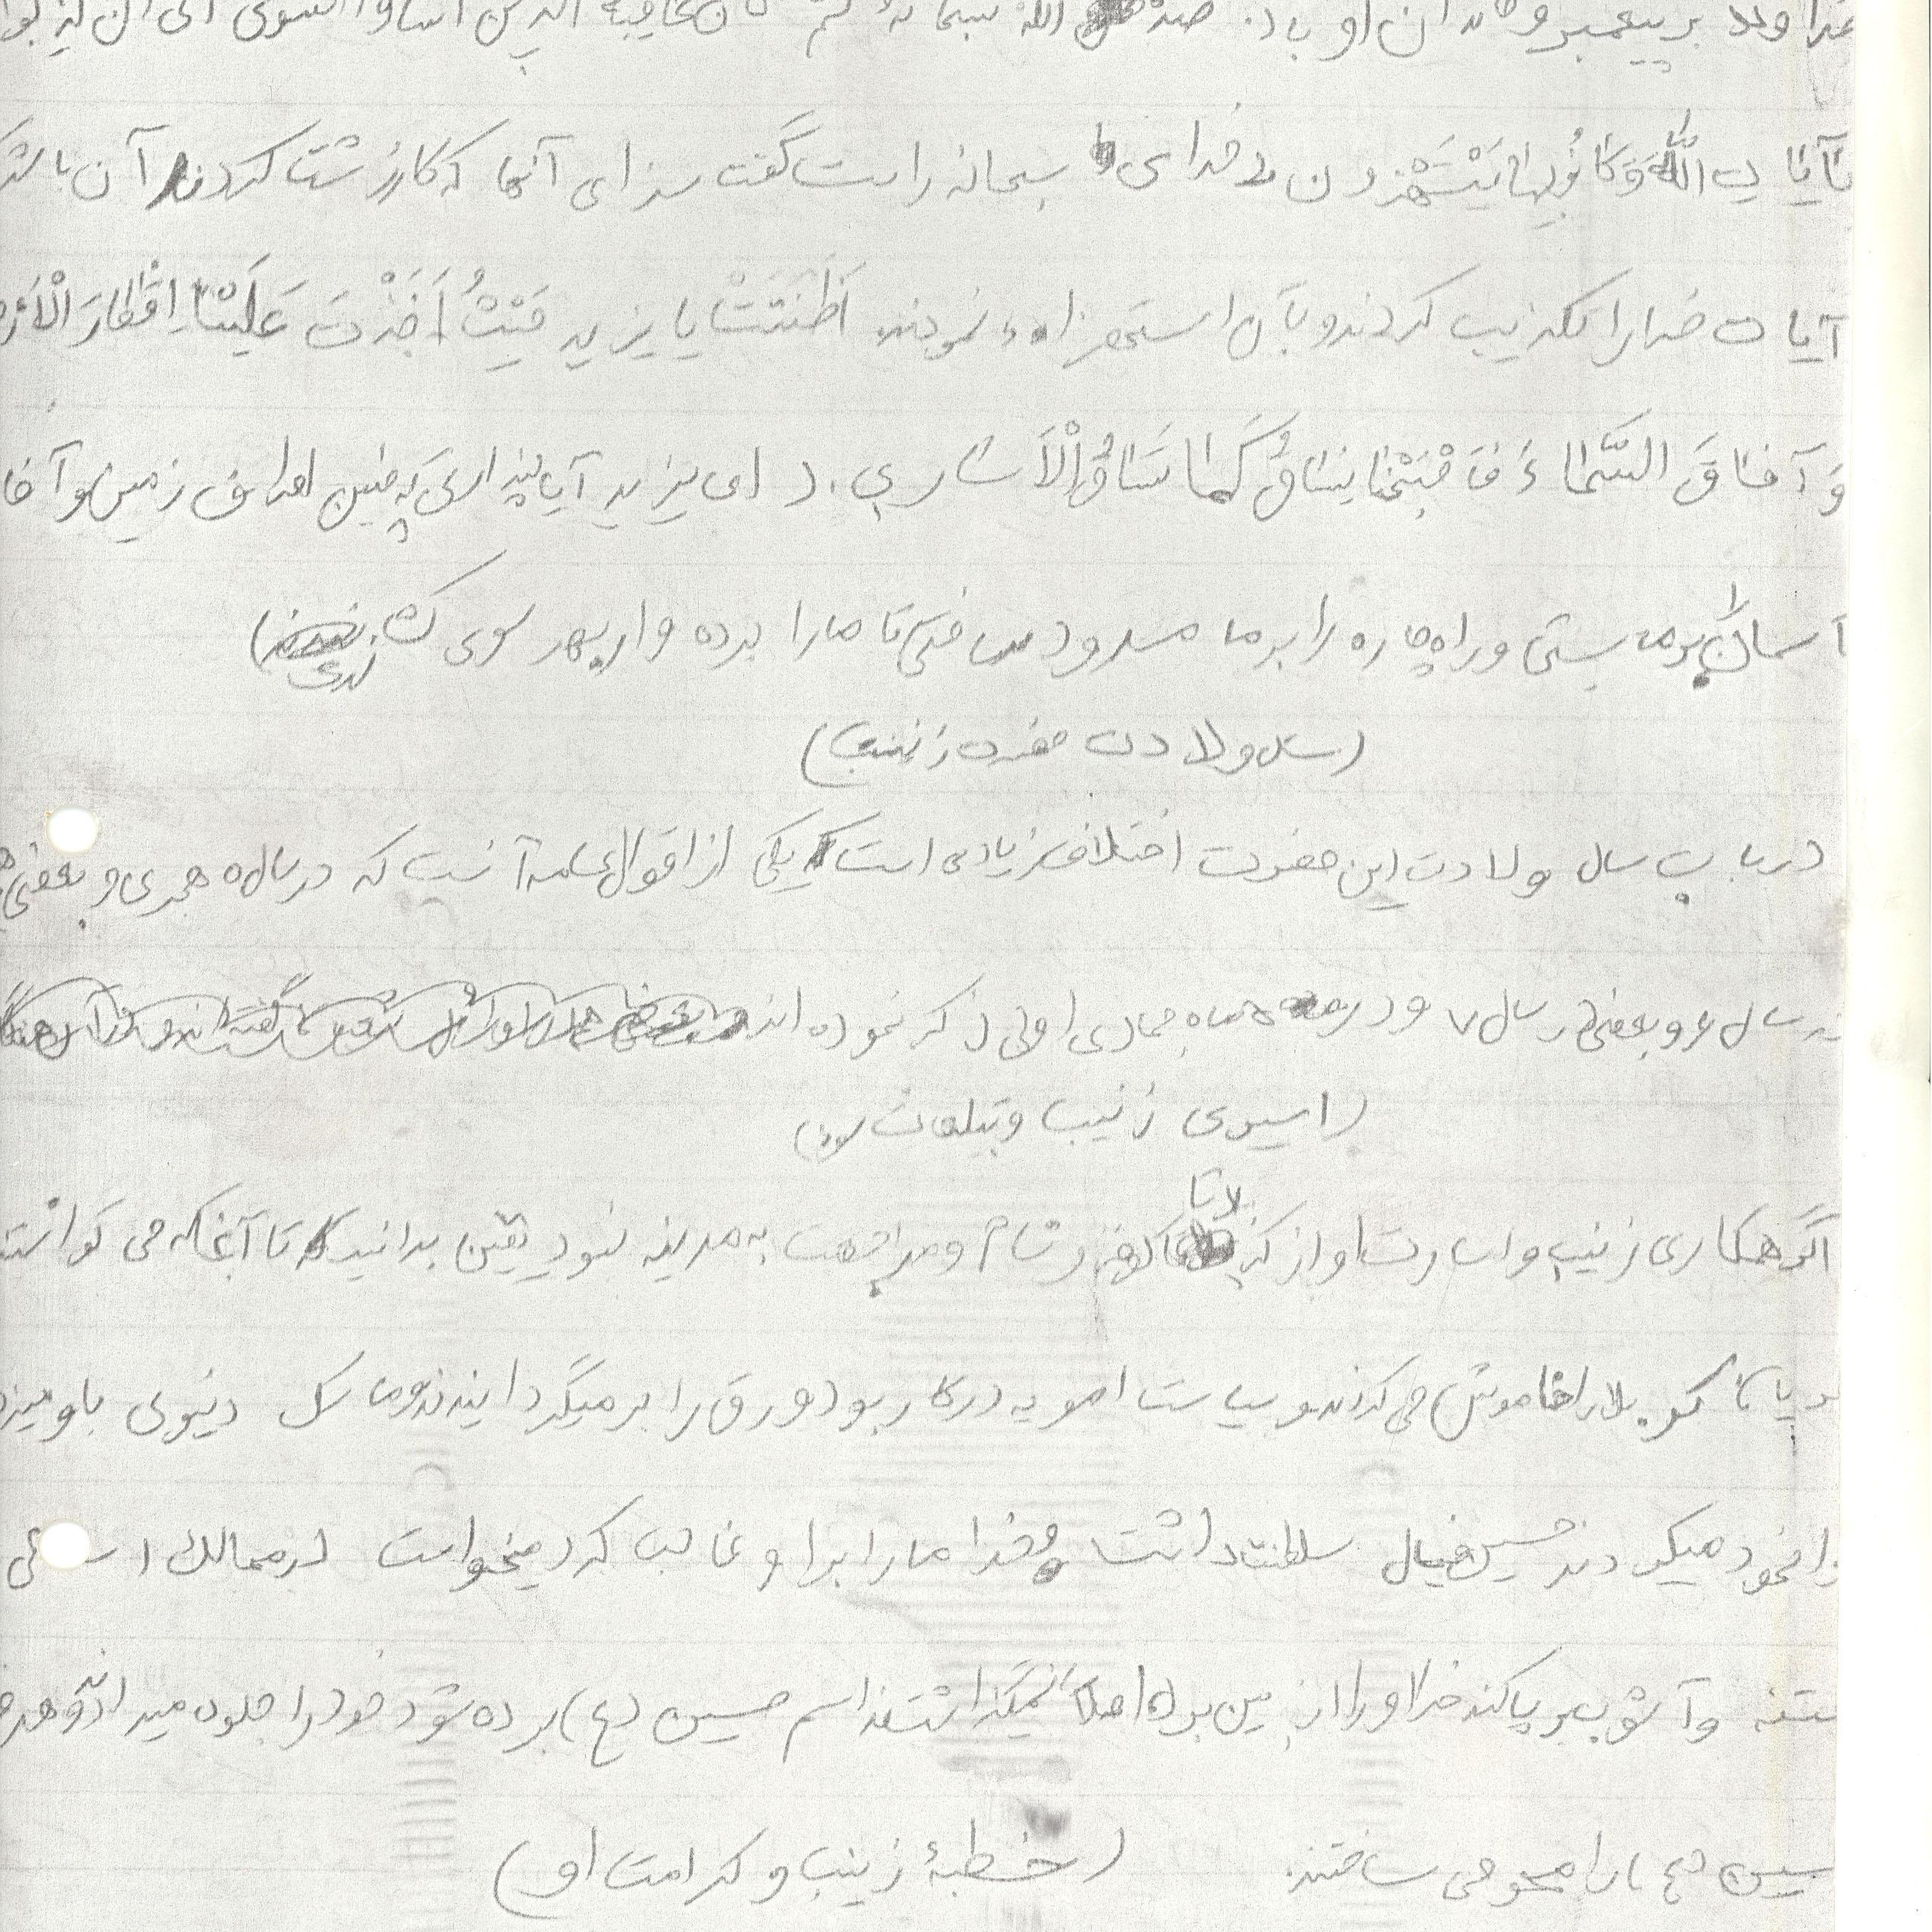 بر پیغمبر و خاندان او باد. صدق الله سبحانه ثم کان عاقبة الذین اساؤا السوی ان
بآیات اللّٰه وَ کانُوبِها یَسْتَهْزِون خدای سبحانه راست گفت سزای آنها که کار زشت کردند آن باشد
آیات خدا را تکذیب کردند و بآن استهزاء نمودند اَظَنَنْتَ یا یزید حَیْثُ اَخَذْتَ عَلَیْنا اِقْطارَ الْاَرْ
وَ آفاقَ السَّماءَ فَاَصْبَحْنا نِساقُ کَما تَساقُ الْاَساری. د ای یزید آیا پنداری که چنین اطراف زمین و آفا
آسمان را بر ما بستی و راه چاره را بر ما مسدود ساختی تا ما را برده وار بهر سوی کشاندی)
(سال ولادت حضرت زینب)
در باب سال ولادت این حضرت اختلاف زیادی است یکی از اقوال عامه آنست که در سال ۵ هجری و بعضی
در سال ۶ و بعضی در سال ۷ و در ماه جمادی اولی ذکر نموده اند
(اسیری زینب و تبلیغات او)
اگر همکاری زینب و اسارت او از کربلا تا کوفه و شام و مراجعت به مدینه نبود یقین بدانید تا آنجا که می توانستند
کربلا را خاموش می کردند و سیاست امویه در کار بود ورق را بر میگرداندند و مسائل دنیوی
وانمود میکردند حسین خیال سلطنت داشت و خدا ما را بر او غالب کرد میخواست در ممالک اسلامی
فتنه و آشوب بر پا کند خدا او را از بین برد اصلا نمیگذاشتند اسم حسین (ع) برده شود خود را جلوه میدادند و هدف
حسین (ع) را محو می ساختند. (خطبهٔ زینب و کرامت او)